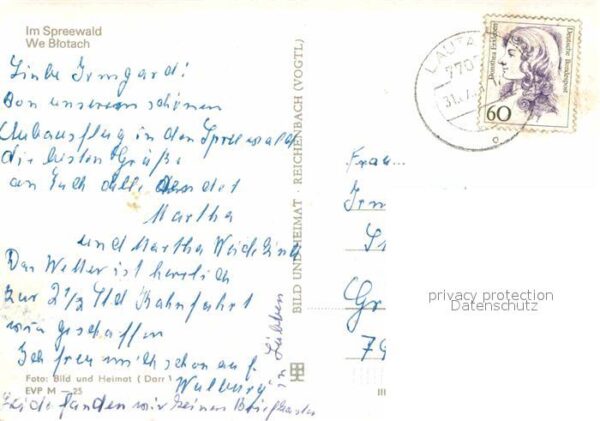 Im Spreewald
We Błotach
Liebe Irmgard!
Von unserem schönen
Urlausflug in den Spreewald
die besten Grüße
an Euch alle sendet
Martha
und Martha
Das Wetter ist herrlich
zur 2 1/2 Std Kahnfahrt
wie geschaffen
Ich freu mich schon auf
Walburg in Lübben
Foto: Bild und Heimat (Darr
EVP M — 25
Leider fanden wir keinen Briefkasten
BILD UND HEIMAT REICHENBACH (VOGTL)
LAUTA
770
31.7.
Dorothea Erxleben
Deutsche Bundespost
60
Frau...
Irm
Gr
79
privacy protection
Datenschutz
III